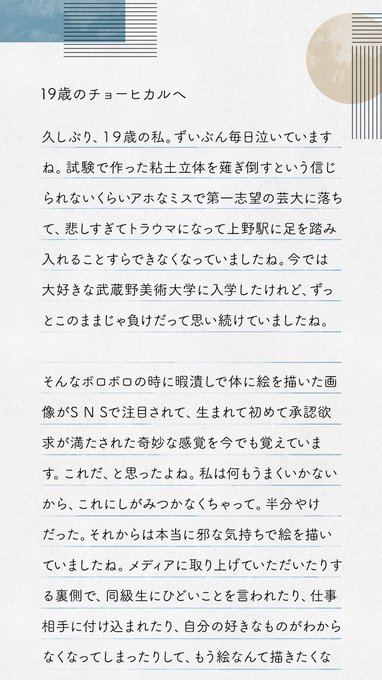 19歳のチョーヒカルへ
久しぶり、19歳の私。ずいぶん毎日泣いています
ね。試験で作った粘土立体を薙ぎ倒すという信じ
られないくらいアホなミスで第一志望の芸大に落ち
て、悲しすぎてトラウマになって上野駅に足を踏み
入れることすらできなくなっていましたね。今では
大好きな武蔵野美術大学に入学したけれど、ずっ
とこのままじゃ負けだって思い続けていましたね。
そんなボロボロの時に暇潰しで体に絵を描いた画
像がSNSで注目されて、生まれて初めて承認欲
求が満たされた奇妙な感覚を今でも覚えていま
す。これだ、と思ったよね。私は何もうまくいかない
から、これにしがみつかなくちゃって。半分やけ
だった。それからは本当に邪な気持ちで絵を描い
ていましたね。メディアに取り上げていただいたりす
る裏側で、同級生にひどいことを言われたり、仕事
相手に付け込まれたり、自分の好きなものがわから
なくなってしまったりして、もう絵なんて描きたくな